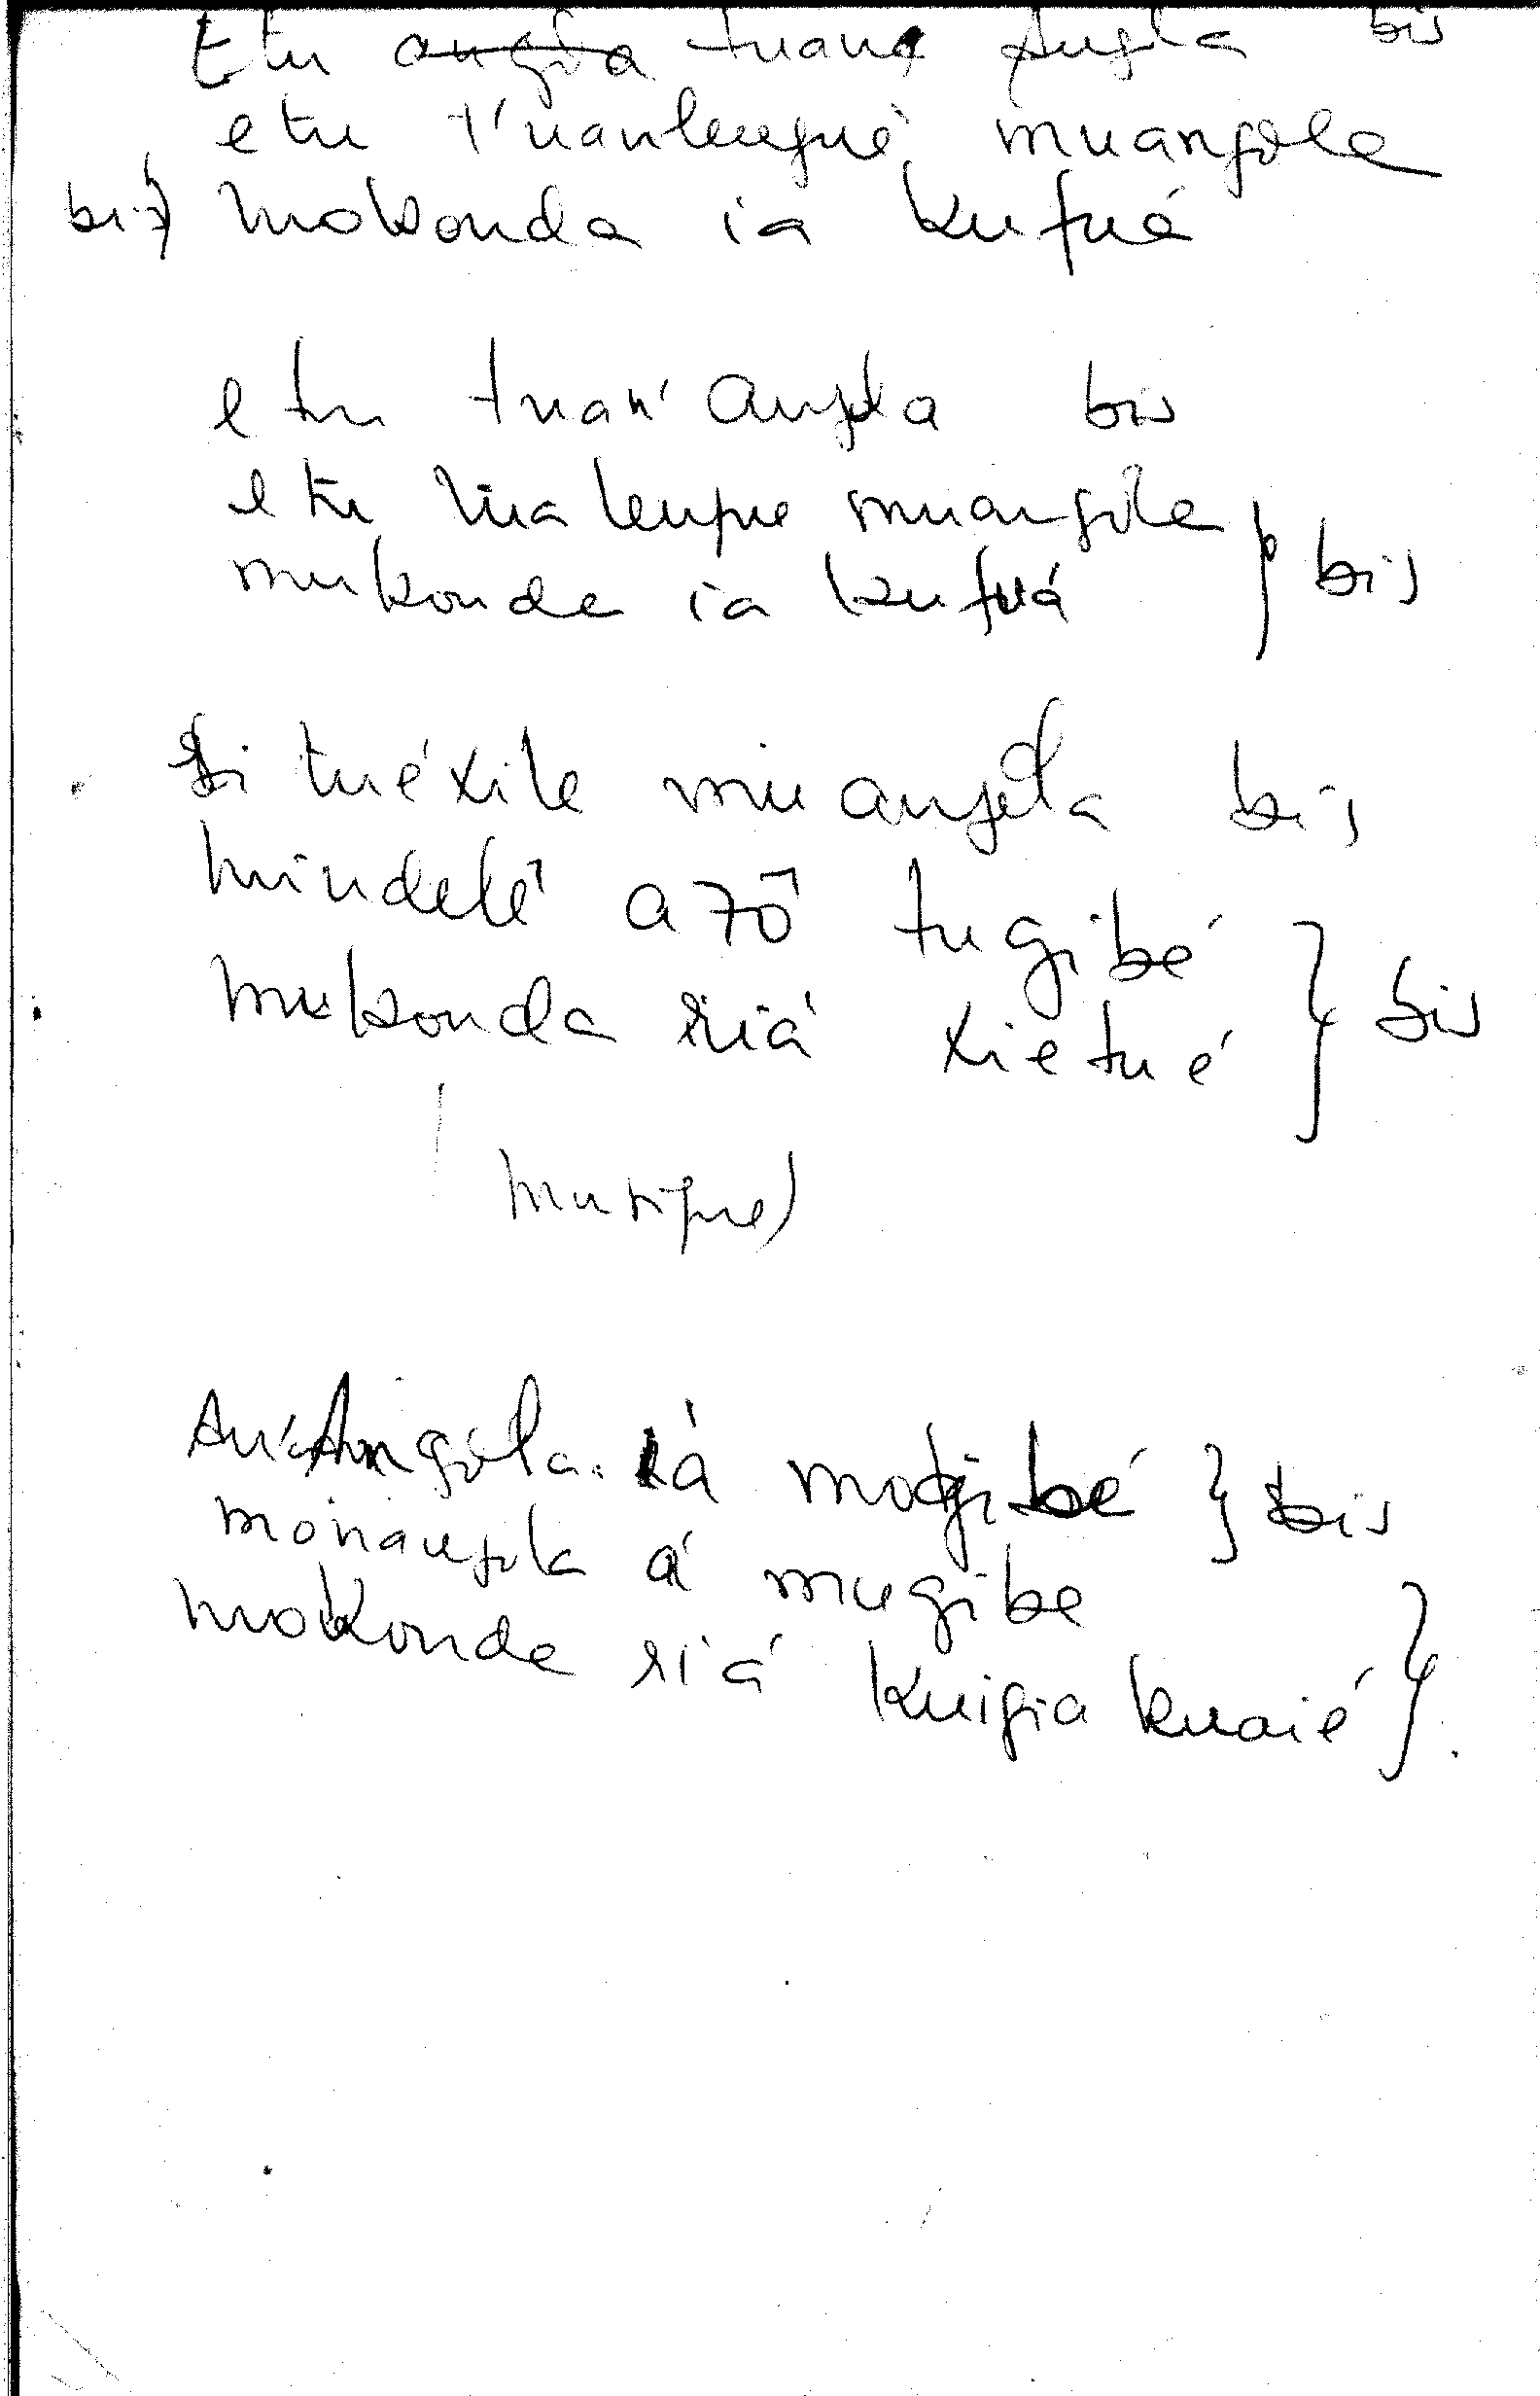 Etu angola tuana Angola bis
etu t'uanlengué muangole
bis) mokonda ia kufuá
etu tuan' Angola bis
etu tua lengue muangole
mukonda ia kufuá } bis
Ki tuéxile mu angola bis
mindelé azó tugibé
mukonda riá xietué } bis
musique)
Au'Angola. iá mogibé } bis
monangola á mugibe
mokonda riá kuigia kuaié }